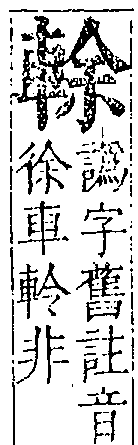 譌字舊註音
徐車軨非